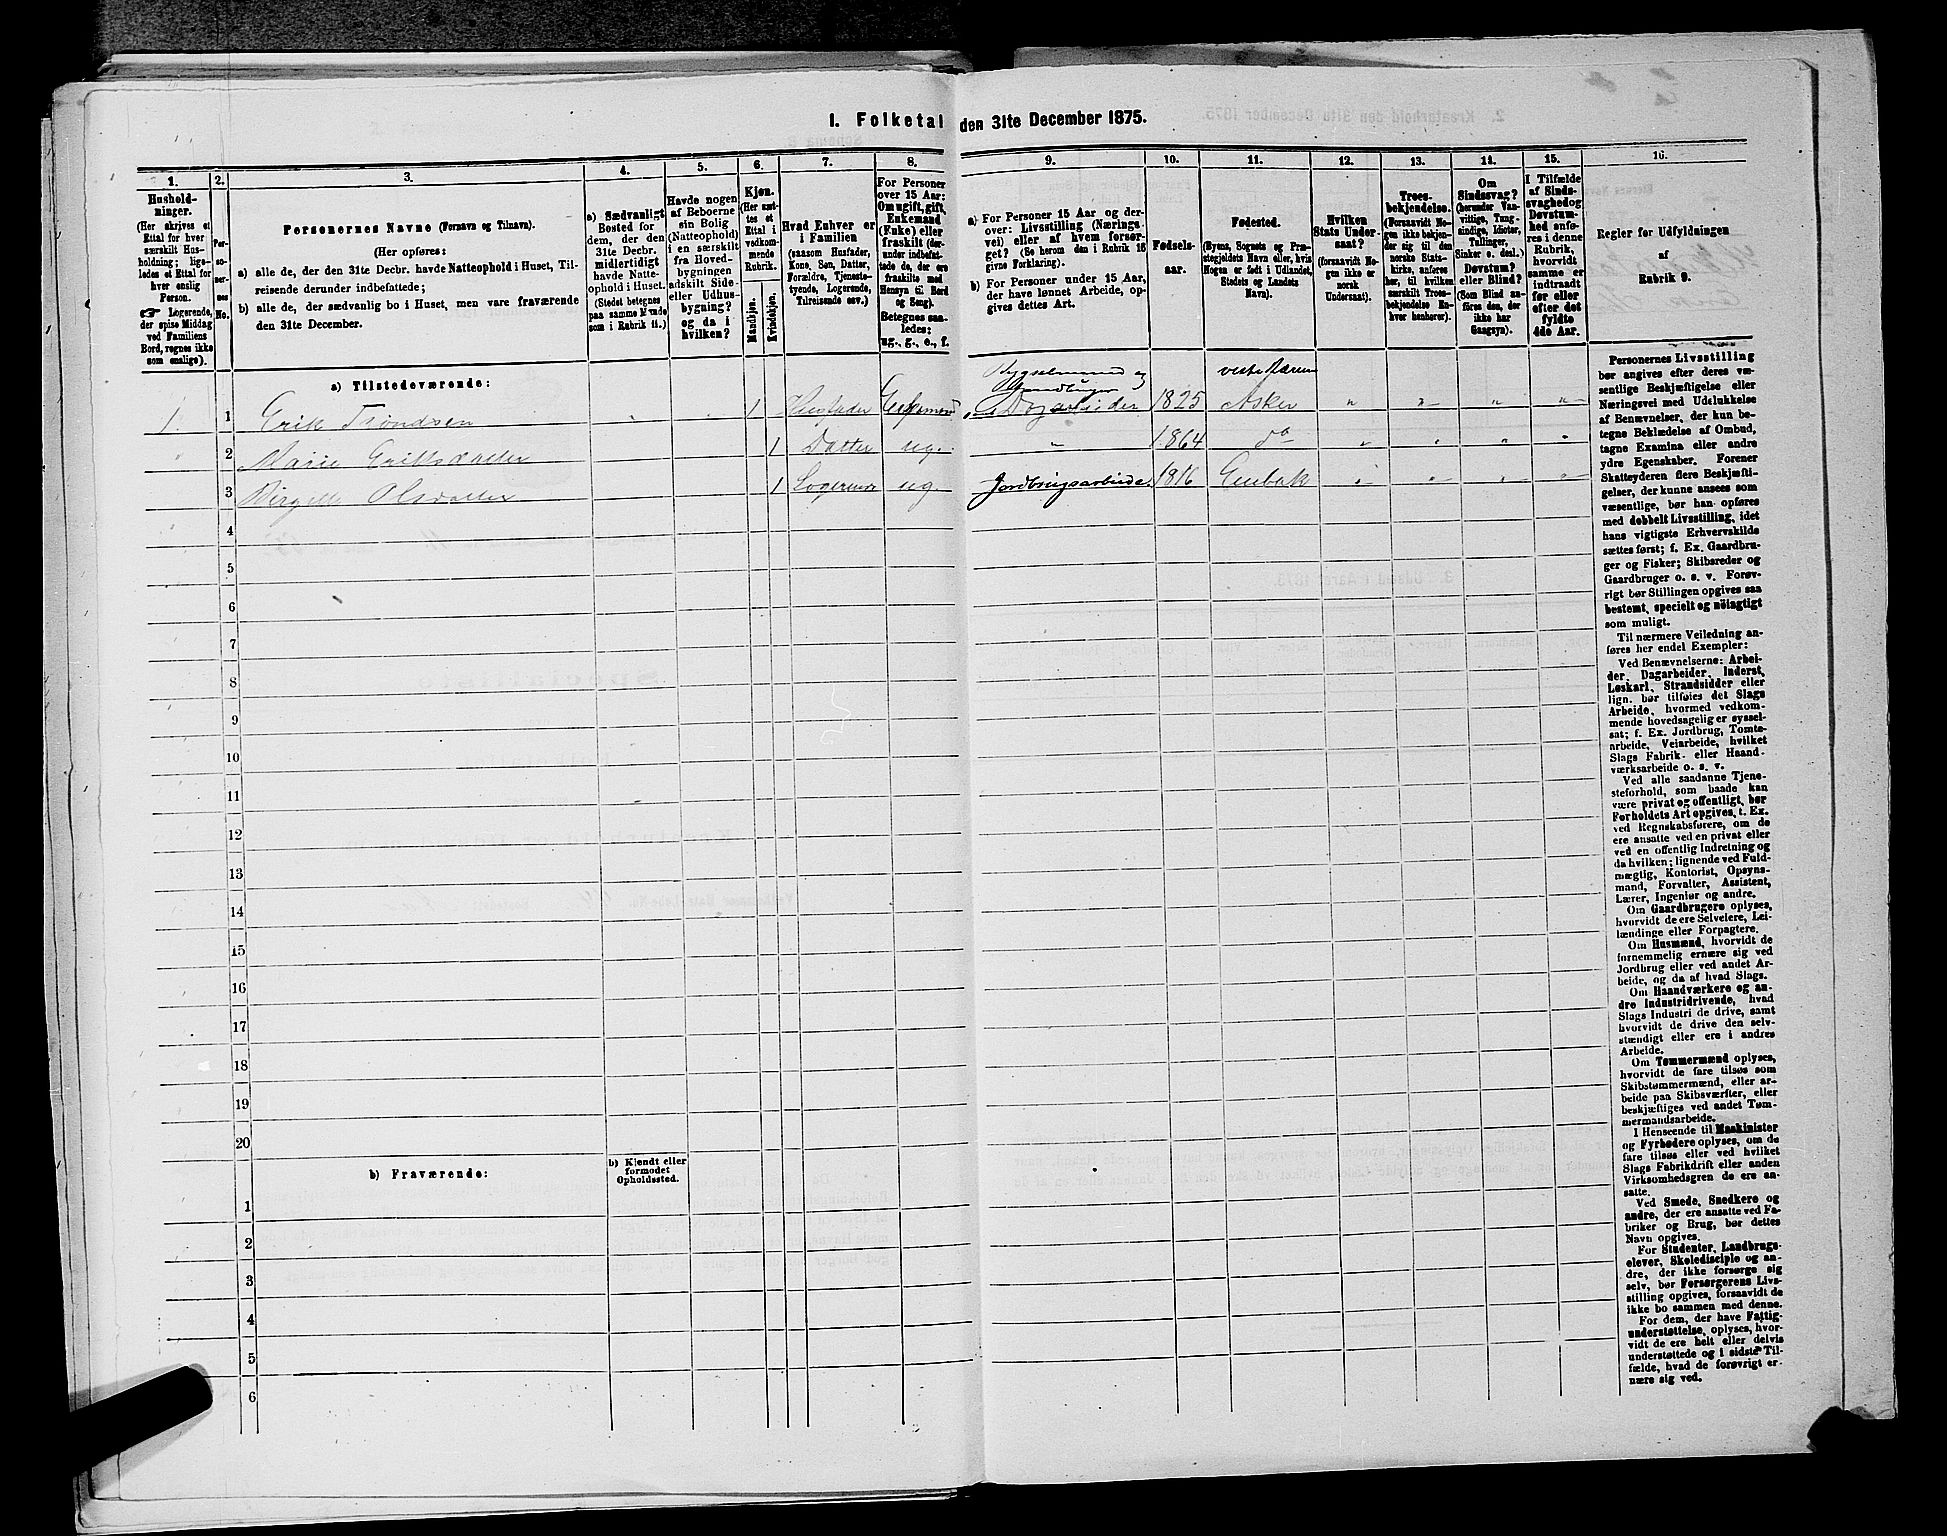 1. Folketal den 31te December 1875.
1.
Hushold-
ninger.
(Her skrives et
Ettal for hver
særskilt Hus-
holdning; lige-
ledes et Ettal for
hver enslig
Person.
☞ Logerende,
der spise Middag
ved Familiens
Bord, regnes ikke
som enslige).
2.
Per-
so-
ner-
nes
No.
3.
Personernes Navne (Fornavn og Tilnavn).
(Her opføres:
a) alle de, der den 31te Decbr. havde Natteophold i Huset, Til-
reisende derunder indbefattede;
b) alle de, der sædvanlig bo i Huset, men vare fraværende
den 31te December.
4.
a) Sædvanligt
Bosted for
dem, der den
31te Decbr.
midlertidigt
havde Natte-
ophold i Huset.
(Stedet betegnes
paa samme Maade
som i Rubrik 11.)
5.
Havde nogen
af Beboerne
sin Bolig
(Natteophold)
i en særskilt
fra Hoved-
bygningen
adskilt Side-
eller Udhus-
bygning?
og da i
hvilken?
6.
Kjøn.
(Her sæt-
tes et
Ettal i
vedkom-
mende
Rubrik.
Mandkjøn.
Kvindekjøn.
7.
Hvad Enhver er
i Familien
(saasom Husfader,
Kone, Søn, Datter,
Forældre, Tjeneste-
tyende, Logerende,
Tilreisende osv.)
8.
For Personer
over 15 Aar:
Om ugift, gift,
Enkemand
(Enke) eller
fraskilt (der-
under indbefat-
tede de, der ere
fraskilte med
Hensyn til Bord
og Seng).
Betegnes saa-
ledes:
ug., g., e., f.
9.
a) For Personer 15 Aar og der-
over: Livsstilling (Nærings-
vei) eller af hvem forsør-
get? (Se herom den i Rubrik 16
givne Forklaring).
b) For Personer under 15 Aar,
der have lønnet Arbeide, op-
gives dettes Art.
10.
Fødsels-
aar.
11.
Fødested.
(Byens, Sognets og Præ-
stegjeldets Navn eller, hvis
Nogen er født i Udlandet,
Stedets og Landets
Navn).
12.
Hvilken
Stats Under-
saat?
(forsaavidt No-
gen ikke er
norsk
Undersaat).
13.
Troes-
bekjendelse.
(Forsaavidt No-
gen ikke bekjen-
der sig til den
norske Stats-
kirke, anføres
her, til hvilken
særskilt Troes-
bekjendelse En-
hver henhører).
14.
Om
Sindssvag?
(herunder Van-
vittige, Tung-
sindige, Idioter,
Tullinger,
Sinker o. desl.)
Døvstum?
eller Blind?
(Som Blind an-
føres den, der
ikke har
Gangsyn).
15.
I Tilfælde
af Sinds-
svaghed og
Døvstum-
hed anfø-
res i denne
Rubrik,
hvorvidt
samme er
indtraadt
før eller
efter det
fyldte
4de Aar.
16.
Regler for Udfyldningen
af
Rubrik 9.
a) Tilstedeværende:
Bygselmand og
Gaardbruger
vestre Bærum
1. 1 Erik Trondsen " " 1 Husfader Enkemand Dagarbeider 1825 Asker " " " "
2 Marie Eriksdatter 1 Datter ug. " 1864 do " " " "
3 Birgitte Olsdatter 1 Logerende ug. Jordbrugsarbeide 1816 " " " "
4
5
6
7
8
9
10
11
12
13
14
15
16
17
18
19
20
b) Fraværende:
b) Kjendt eller
formodet
Opholdssted.
1
2
3
4
5
6
Personernes Livsstilling
bør angives efter deres væ-
sentlige Beskjæftigelse eller
Næringsvei med Udelukkelse
af Benævnelser, der kun be-
tegne Beklædelse af Ombud,
tagne Examina eller andre
ydre Egenskaber. Forener
Skatteyderen flere Beskjæfti-
gelser, der kunne ansees som
væsentlige, bør han opføres
med dobbelt Livsstilling, idet
hans vigtigste Erhvervskilde
sættes først; f. Ex. Gaardbru-
ger og Fisker; Skibsreder og
Gaardbruger o. s. v. Forøv-
rigt bør Stillingen opgives saa
bestemt, specielt og nöiagtigt
som muligt.
Til nærmere Veiledning an-
føres her endel Exempler:
Ved Benævnelserne: Arbei-
der, Dagarbeider, Inderst,
Løskarl, Strandsidder eller
lign. bør tilføies det Slags
Arbeide, hvormed vedkom-
mende hovedsagelig er syssel-
sat; f. Ex. Jordbrug, Tomte-
arbeide, Veiarbeide, hvilket
Slags Fabrik- eller Haand-
værksarbeide o. s. v.
Ved alle saadanne Tjene-
steforhold, som baade kan
være privat og offentligt, bør
Forholdets Art opgives, t. Ex.
ved Regnskabsførere, om de
ere ansatte ved en privat eller
ved en offentlig Indretning og
da hvilken; lignende ved Fuld-
mægtig, Kontorist, Opsyns-
mand, Forvalter, Assistent,
Lærer, Ingeniør og andre.
Om Gaardbrugere oplyses,
hvorvidt de ere Selveiere, Lei-
lændinge eller Forpagtere.
Om Husmænd, hvorvidt de
fornemmelig ernære sig ved
Jordbrug eller ved andet Ar-
beide, og da af hvad Slags.
Om Haandværkere og an-
dre Industridrivende, hvad
Slags Industri de drive, samt
hvorvidt de drive den selv-
stændigt eller ere i andres
Arbeide.
Om Tømmermænd oplyses,
hvorvidt de fare tilsøs som
Skibstømmermænd, eller ar-
beide paa Skibsværfter, eller
beskjæftiges ved andet Tøm-
mermandsarbeide.
I Henseende til Maskinister
og Fyrbødere oplyses, om de
fare tilsøs eller ved hvilket
Slags Fabrikdrift eller anden
Virksomhedsgren de ere an-
satte.
Ved Smede, Snedkere og
andre, der ere ansatte ved Fa-
briker og Brug, bør dettes
Navn opgives.
For Studenter, Landbrugs-
elever, Skoledisciple og an-
dre, der ikke forsørge sig
selv, bør Forsørgerens Livs-
stilling opgives, forsaavidt de
ikke bo sammen med denne.
For dem, der have Fattig-
understøttelse, oplyses, hvor-
vidt de ere helt eller delvis
understøttede og i sidste Til-
fælde, hvad de forøvrigt er-
nære sig ved.